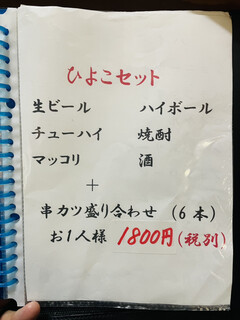 ひよこセット
生ビール　ハイボール
チューハイ　焼酎
マッコリ　酒
＋
串カツ盛り合わせ (6本)
お1人様 1800円(税別)